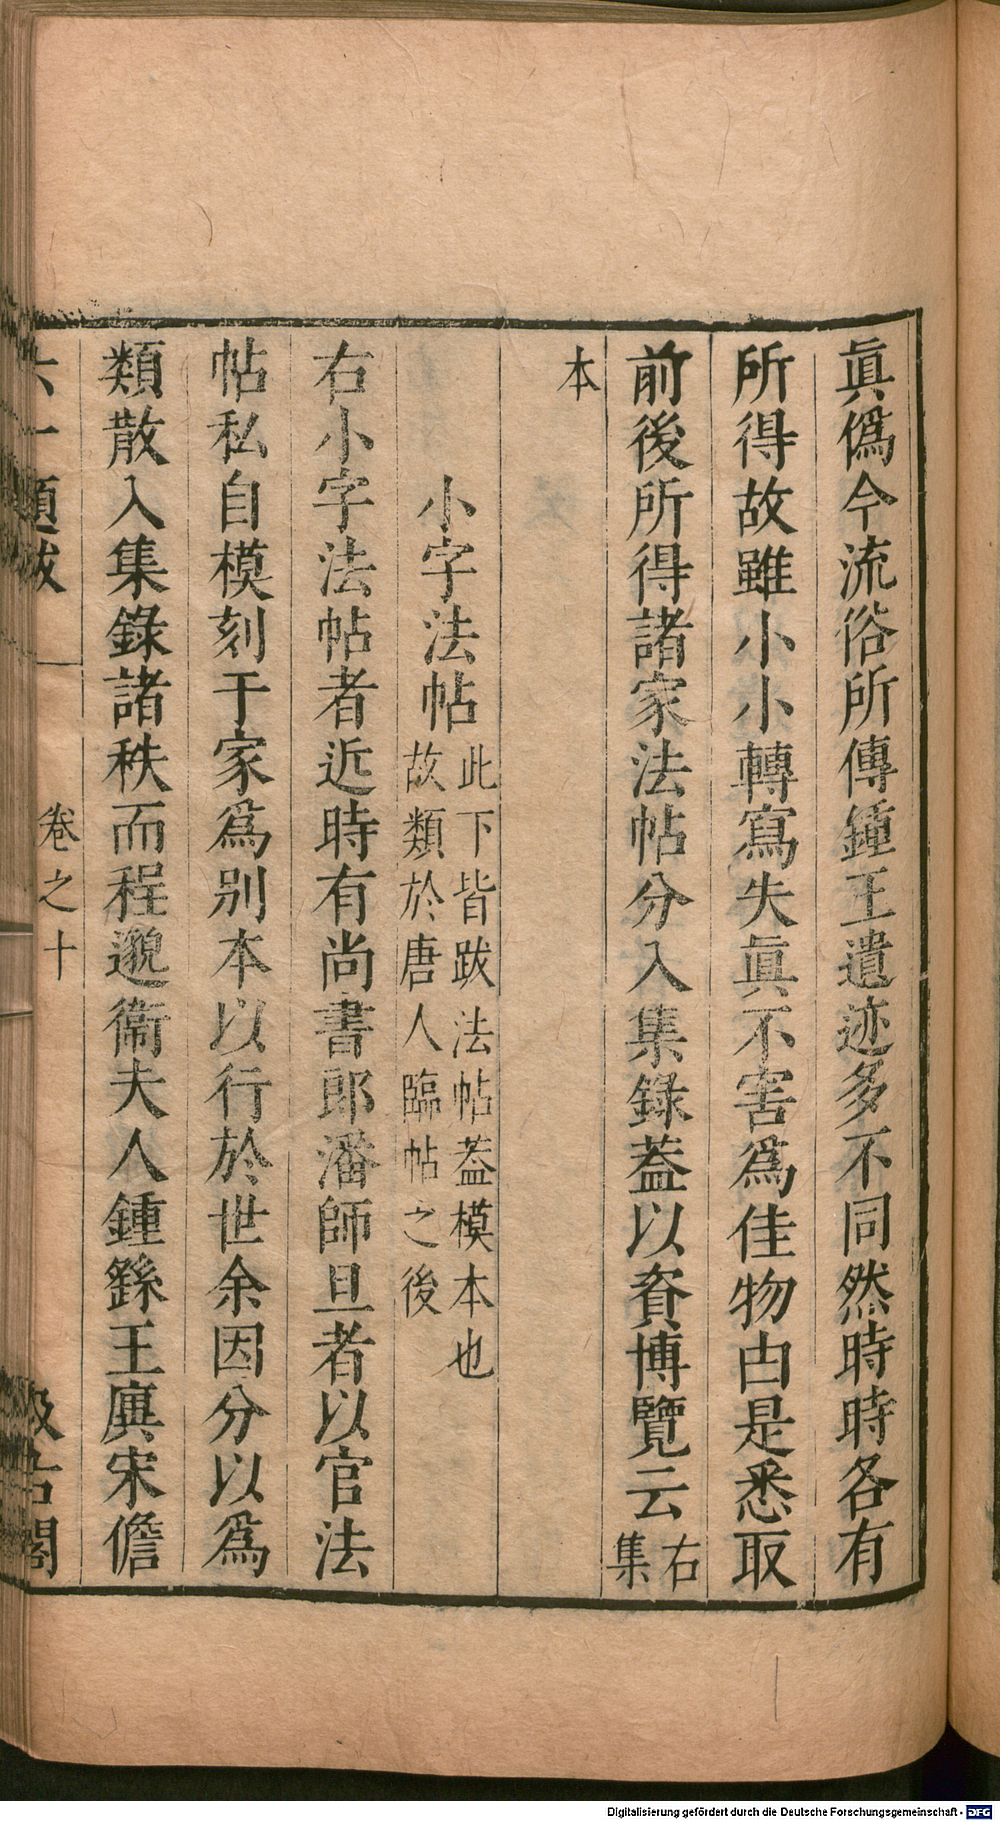 眞僞今流俗所傳鍾王遺迹多不同然時時各有
所得故雖小小轉寫失眞不害爲佳物由是悉取
前後所得諸家法帖分入集錄蓋以資博覽云右集
本
小字法帖此下皆跋法帖蓋模本也故類於唐人臨帖之後
右小字法帖者近時有尚書郎潘師旦者以官法
帖私自模刻于家爲別本以行於世余因分以爲
類散入集錄諸秩而程邈衞夫人鍾繇王廙宋儋
六一題跋 卷之十 汲古閣
Digitalisierung gefördert durch die Deutsche Forschungsgemeinschaft - DFG